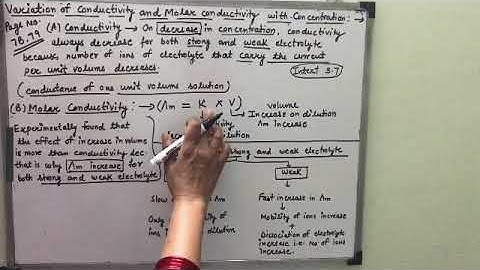 Variation of Conductivity and Molar conductivity with Concentration: →
Page No:
78.79
(A) Conductivity → On decrease in concentration, conductivity
always decrease for both strong and weak electrolyte
because number of ions of electrolyte that carry the current
per unit volume decreases.
Intext 3.7
(conductance of one unit volume solution)
(B) Molar Conductivity: → (Λm = K × V)
volume
Increase on dilution
Λm increase
Experimentally found that
the effect of increase in volume
is more than conductivity dec
that is why Λm increase for
both strong and weak electrolyte
strong and weak electrolyte
Weak
Slow
Fast increase in Λm
Only
of
Mobility of ions increase
+
ions
dilution
Dissociation of electrolyte
increase i.e. No of ions
increase.